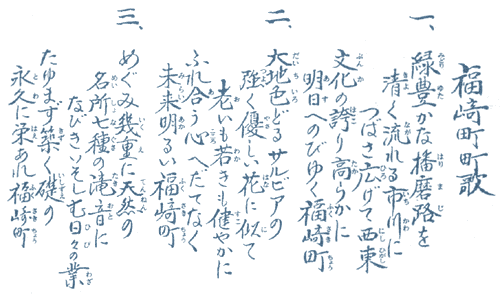 福崎町町歌
一、
緑豊かな播磨路を
清く流れる市川に
つばさ広げて西東
文化の誇り高らかに
明日へのびゆく福崎町
二、
大地色どるサルビアの
強く優しい花に似て
老いも若きも健やかに
ふれ合う心へだてなく
未来明るい福崎町
三、
めぐみ幾重に天然の
名所七種の滝音に
なびきいそしむ日々の業
たゆまず築く礎の
永久に栄あれ福崎町